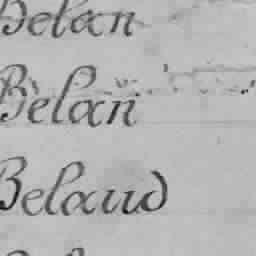 Belan
Belan
Belaud